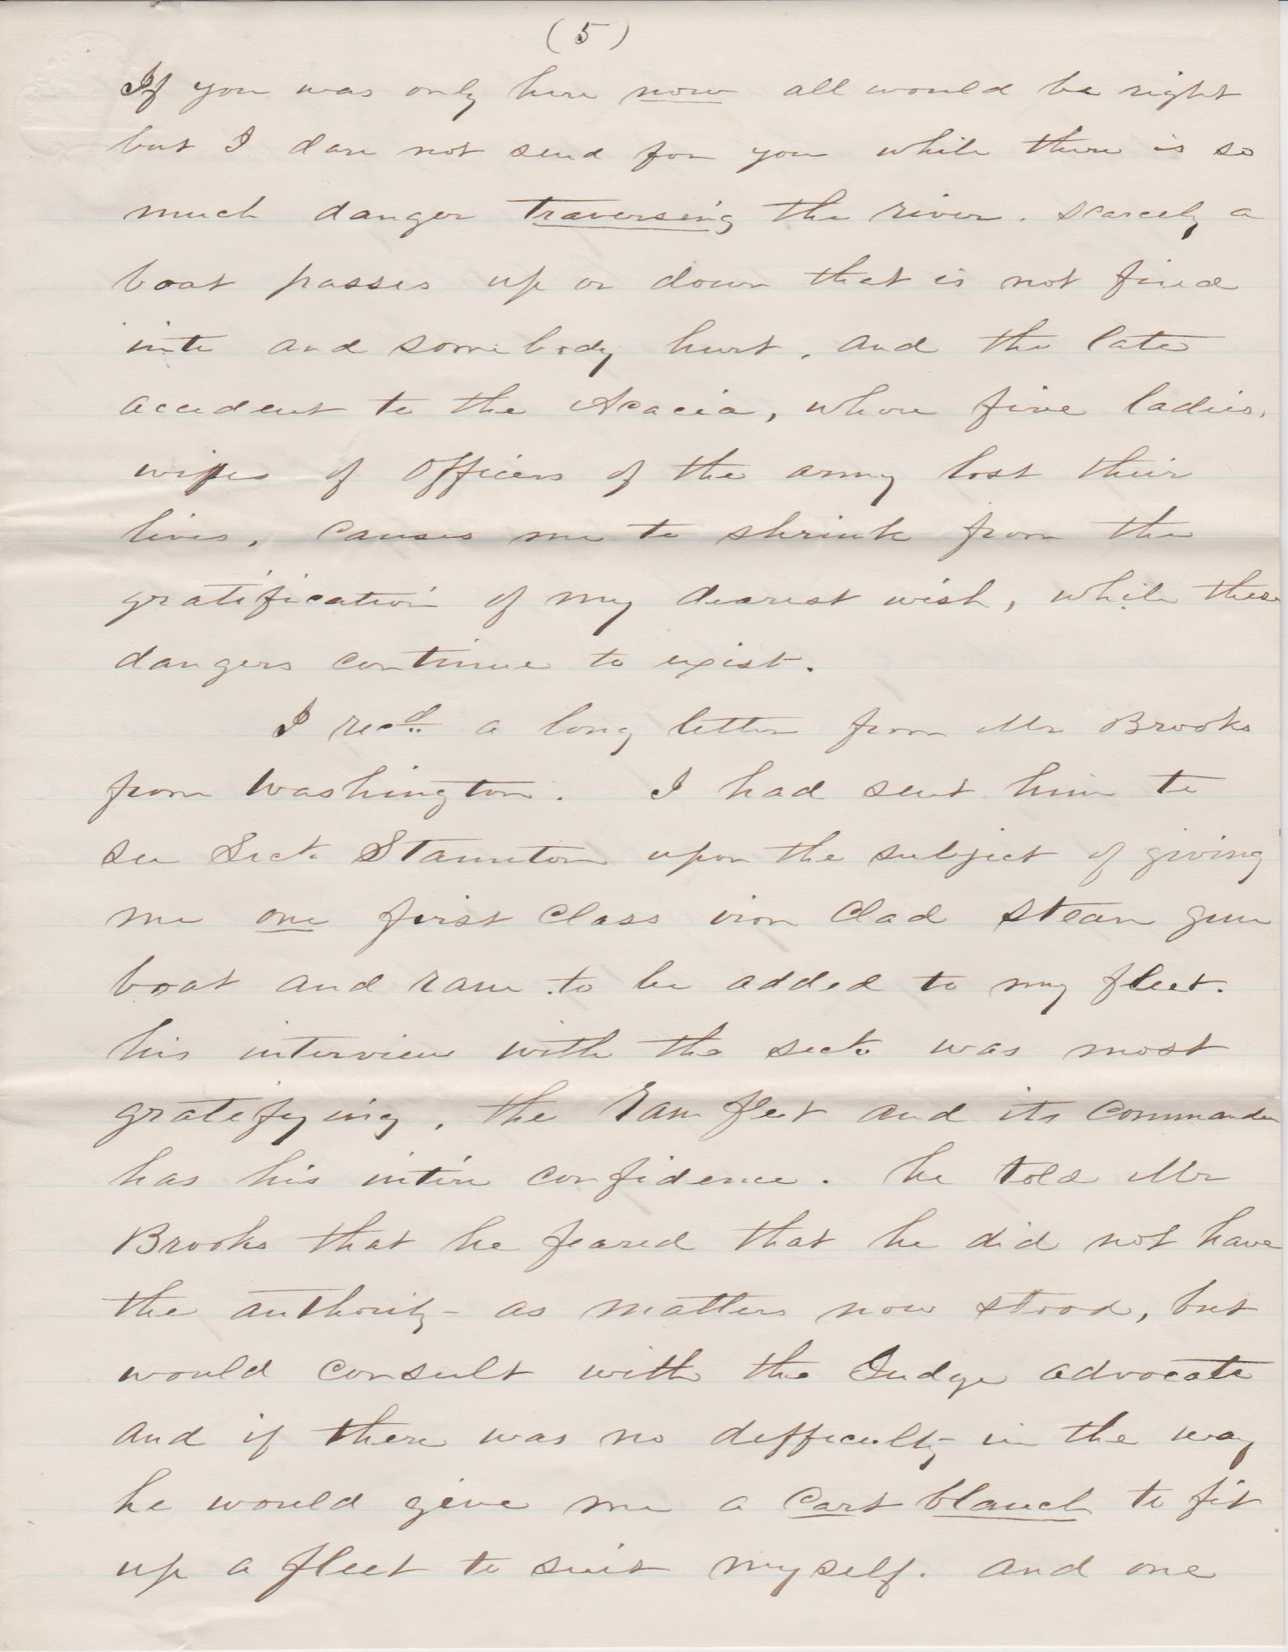 (5)
If you was only here now all would be right
but I dare not send for you while there is so
much danger traversing the river. scarcely a
boat passes up or down that is not fired
into and somebody hurt, and the late
accident to the Acacia, where five ladies,
wifes of officers of the army lost their
lives, causes me to shrink from the
gratification of my dearest wish, while these
dangers continue to exist.
I recd. a long letter from Mr Brooks
from Washington. I had sent him to
see Sect. Staunton upon the subject of giving
me one first class iron clad steam gun
boat and ram to be added to my fleet.
his interview with the sect. was most
gratifying, the Ram fleet and its commander
has his intire confidence. he told Mr
Brooks that he feared that he did not have
the authority as matters now stood, but
would consult with the Judge advocate
and if there was no difficulty in the way
he would give me a cart blanch to fit
up a fleet to suit myself. and one